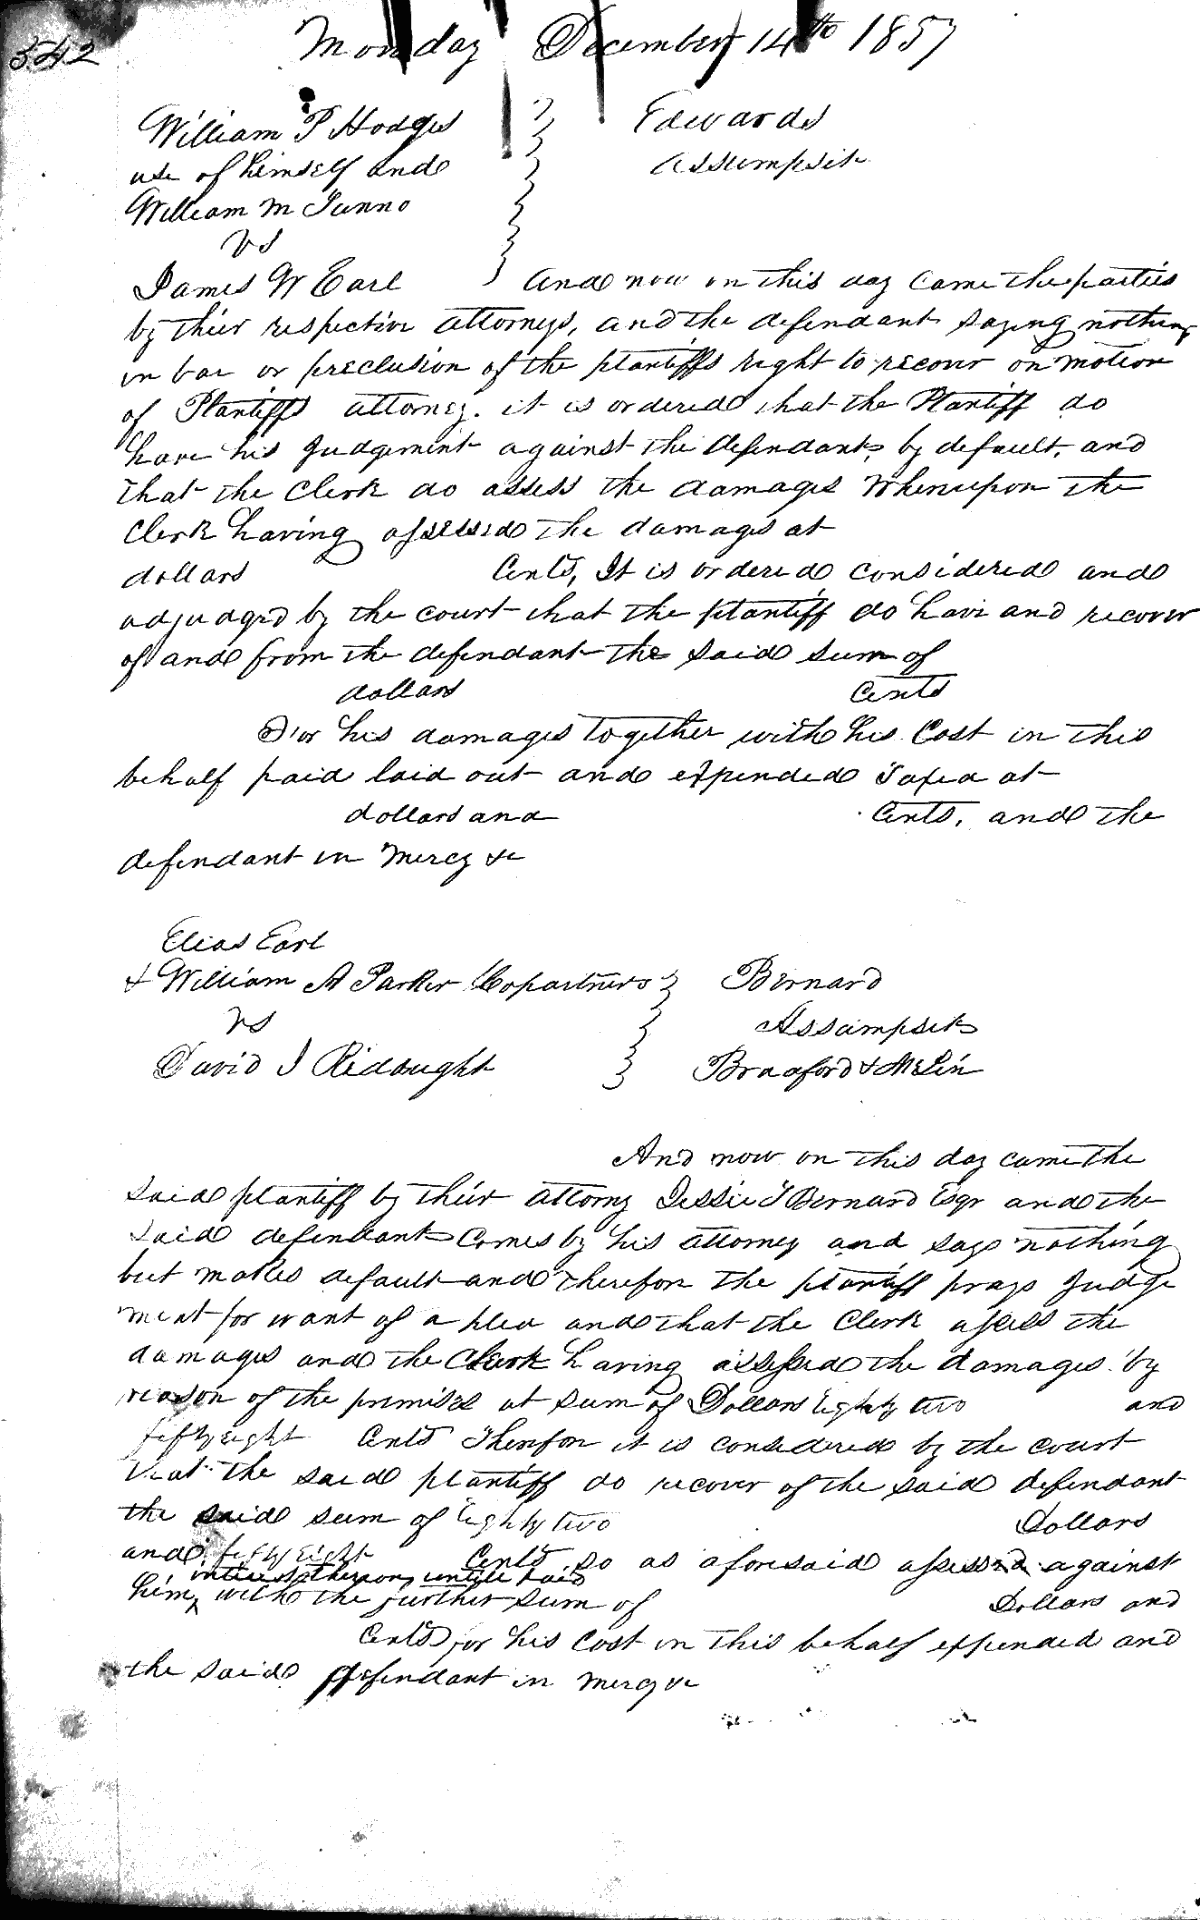 342
Monday December 14th 1857
William P Hodges } Edwards
use of himself and } Assumpsit
William M Tunno
vs
James W Earl } And now on this day came the parties
by thier respective attorneys, and the defendant saying nothing
in bar or preclusion of the plantiffs right to recover on motion
of Plantiffs attorney. it is ordered that the Plantiff do
have his Judgement against the defendant by default, and
that the Clerk do assess the damages Whereupon the
Clerk having assessed the damages at
dollars Cents, It is ordered considered and
adjuaged by the court that the plantiff do have and recover
of and from the defendant the said sum of
dollars Cents
For his damages together with his Cost in this
behalf paid laid out and expended Taxed at
dollars and Cents, and the
defendant in Mercy &c
Elias Earl
& William A Parker Copartners } Bernard
vs } Assumpsit
David J Ridaught } Bradford & McLin
And now on this day came the
said plantiff by thier attorny Jessie T Bernard Esqr and the
said defendant comes by his attorney and says nothing
but makes default and therefor the plantiff prays Judge
ment for want of a plea and that the Clerk assess the
damages and the Clerk having assessed the damages by
reason of the premises at sum of Dollars Eighty two and
fifty eight Cents Therefor it is considered by the court
that the said plantiff do recover of the said defendant
the said sum of Eighty two Dollars
and fifty Eight Cents so as aforesaid assessed against
interest thereon until paid
him, with the further sum of Dollars and
Cents for his Cost in this behalf expended and
the said defendant in mercy &c